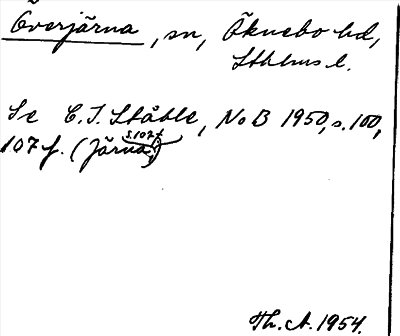 Överjärna, sn, Öknebo hd,
Sthlms l.
Se C. I. Ståhle, NoB 1950, s. 100,
107 f. (Järna)
s. 107 f.
Th. A. 1954.